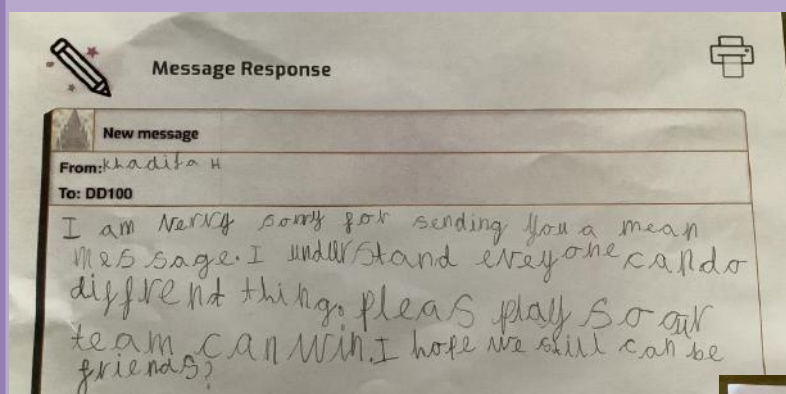 Message Response
New message
From: Khadija H
To: DD100
I am verry sorry for sending you a mean
message. I understand evey one can do
diffrent thing. pleas play so our
team can win. I hope we still can be
friends?